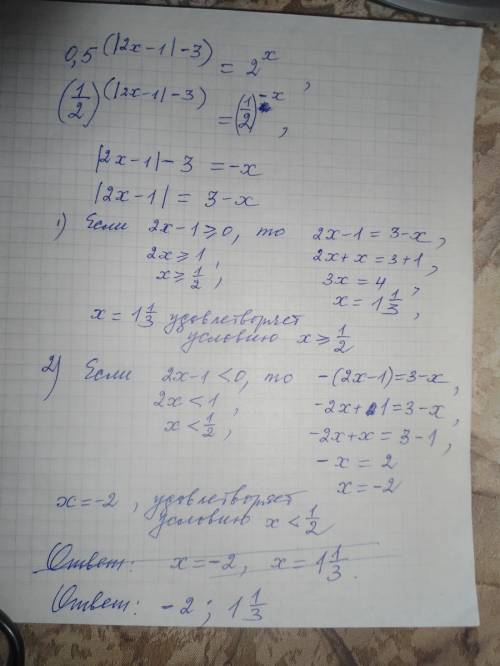 0,5^(|2x-1|-3) = 2^x,
(1/2)^(|2x-1|-3) = (1/2)^-x,
|2x-1|-3 = -x
|2x-1| = 3-x
1) Если 2x-1≥0, то 2x-1=3-x,
2x≥1, 2x+x=3+1,
x≥1/2, 3x=4,
x=1 1/3,
x=1 1/3 удовлетворяет
условию x≥1/2
2) Если 2x-1<0, то -(2x-1)=3-x,
2x<1, -2x+1=3-x,
x<1/2, -2x+x=3-1,
-x=2
x=-2
x=-2, удовлетворяет
условию x<1/2
Ответ: x=-2, x=1 1/3.
Ответ: -2; 1 1/3